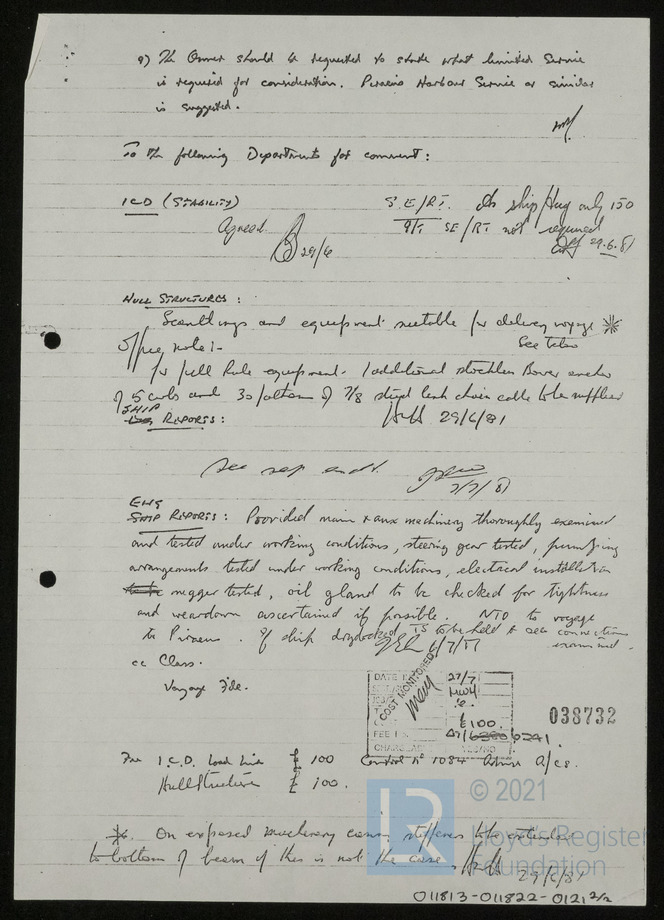 9) The Owner should be requested to state what limited Service
is required for consideration. Piraeus Harbour Service or similar
is suggested.
To the following Departments for comment:
ICD (STABILITY)
Agreed.
29/6
S.E/RT. As ship/tug only 150
G/T SE/RT not required
29.6.81
HULL STRUCTURES:
Scantlings and equipment suitable for delivery voyage *
Office note:-
See below
for full Rule equipment. 1 additional stockless Bower anchor
of 5 cwts and 30 fathom of 7/8 stud link chain cable to be supplied
29/6/81
SHIP
REPORTS:
See sep endt.
2/7/81
ENG
SHIP REPORTS: Provided main + aux machinery thoroughly examined
and tested under working conditions, steering gear tested, pumping
arrangements tested under working conditions, electrical installation
megger tested, oil gland to be checked for tightness
and weardown ascertained if possible. NTO to voyage
to Piraeus. If ship drydocked TS to be held & sea connections
examined.
6/7/81
cc Class.
Voyage File.
DATE
COST MONITORED
27/7
£100.
FEE
038732
Fee I.C.D. Load Line £ 100 Control No 1084 Advise A/cs.
Hull Structure £ 100.
* On exposed machinery casing stiffeners to be extended
to bottom of beam if this is not the case.
29/6/81
© 2021
LR
Lloyd's Register
Foundation
011813-011822-0121 2/2